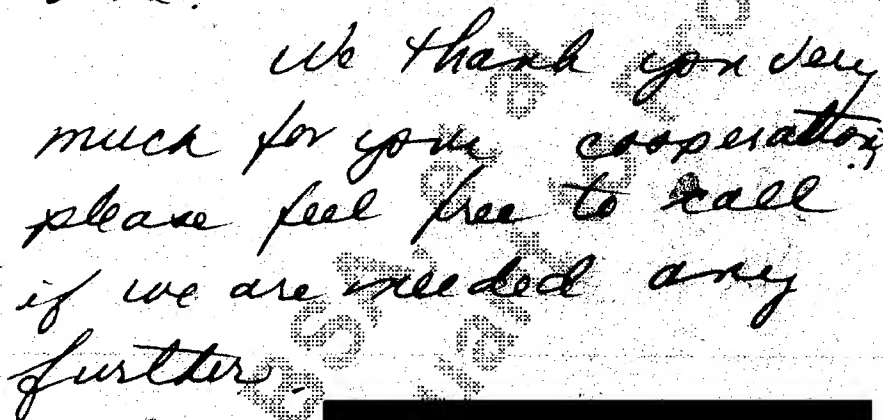 We thank you very
much for your cooperation,
please feel free to call
if we are needed any
further.